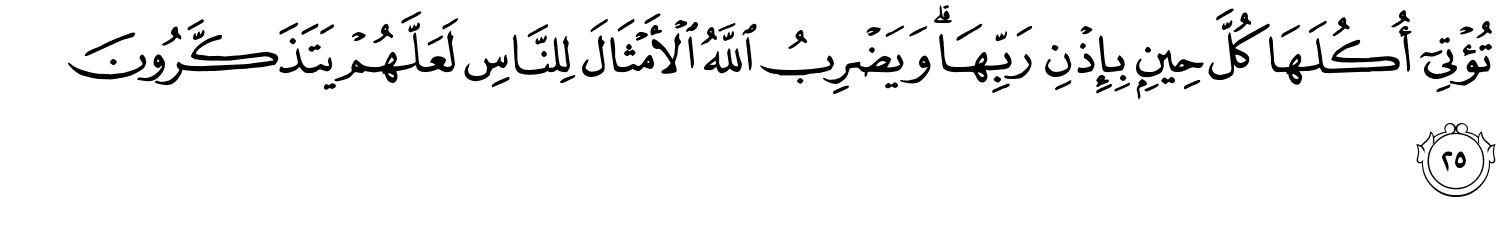 تُؤۡتِيٓ أُكُلَهَا كُلَّ حِينِۭ بِإِذۡنِ رَبِّهَاۗ وَيَضۡرِبُ ٱللَّهُ ٱلۡأَمۡثَالَ لِلنَّاسِ لَعَلَّهُمۡ يَتَذَكَّرُونَ
٢٥